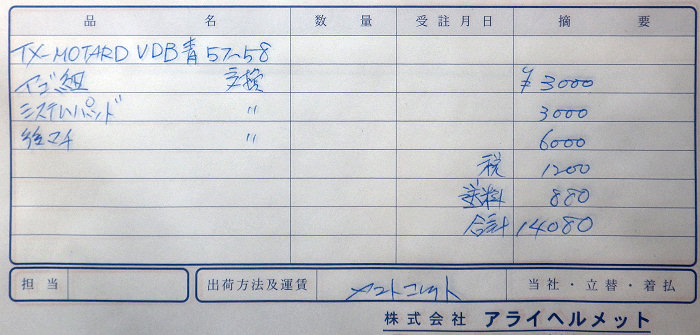 品 名 数 量 受 註 月 日 摘 要
TX-MOTARD VDB青 57~58
アゴ組 交換 ¥3000
システムパッド 〃 3000
〃 6000
税 1200
送料 880
合計 14080
担 当 出荷方法及運賃 ヤマトコレクト 当社・立替・着払
株式会社 アライヘルメット